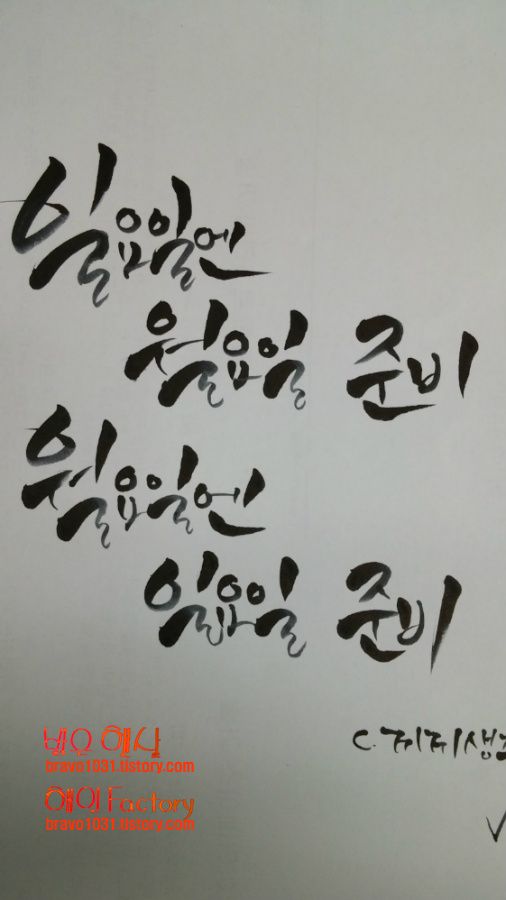 일요일엔
월요일 준비
월요일엔
일요일 준비
bravo1031.tistory.com
해인 Factory
bravo1031.tistory.com